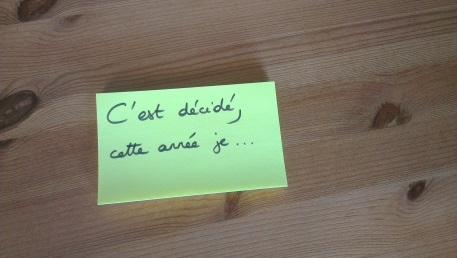 C'est décidé,
cette année je...